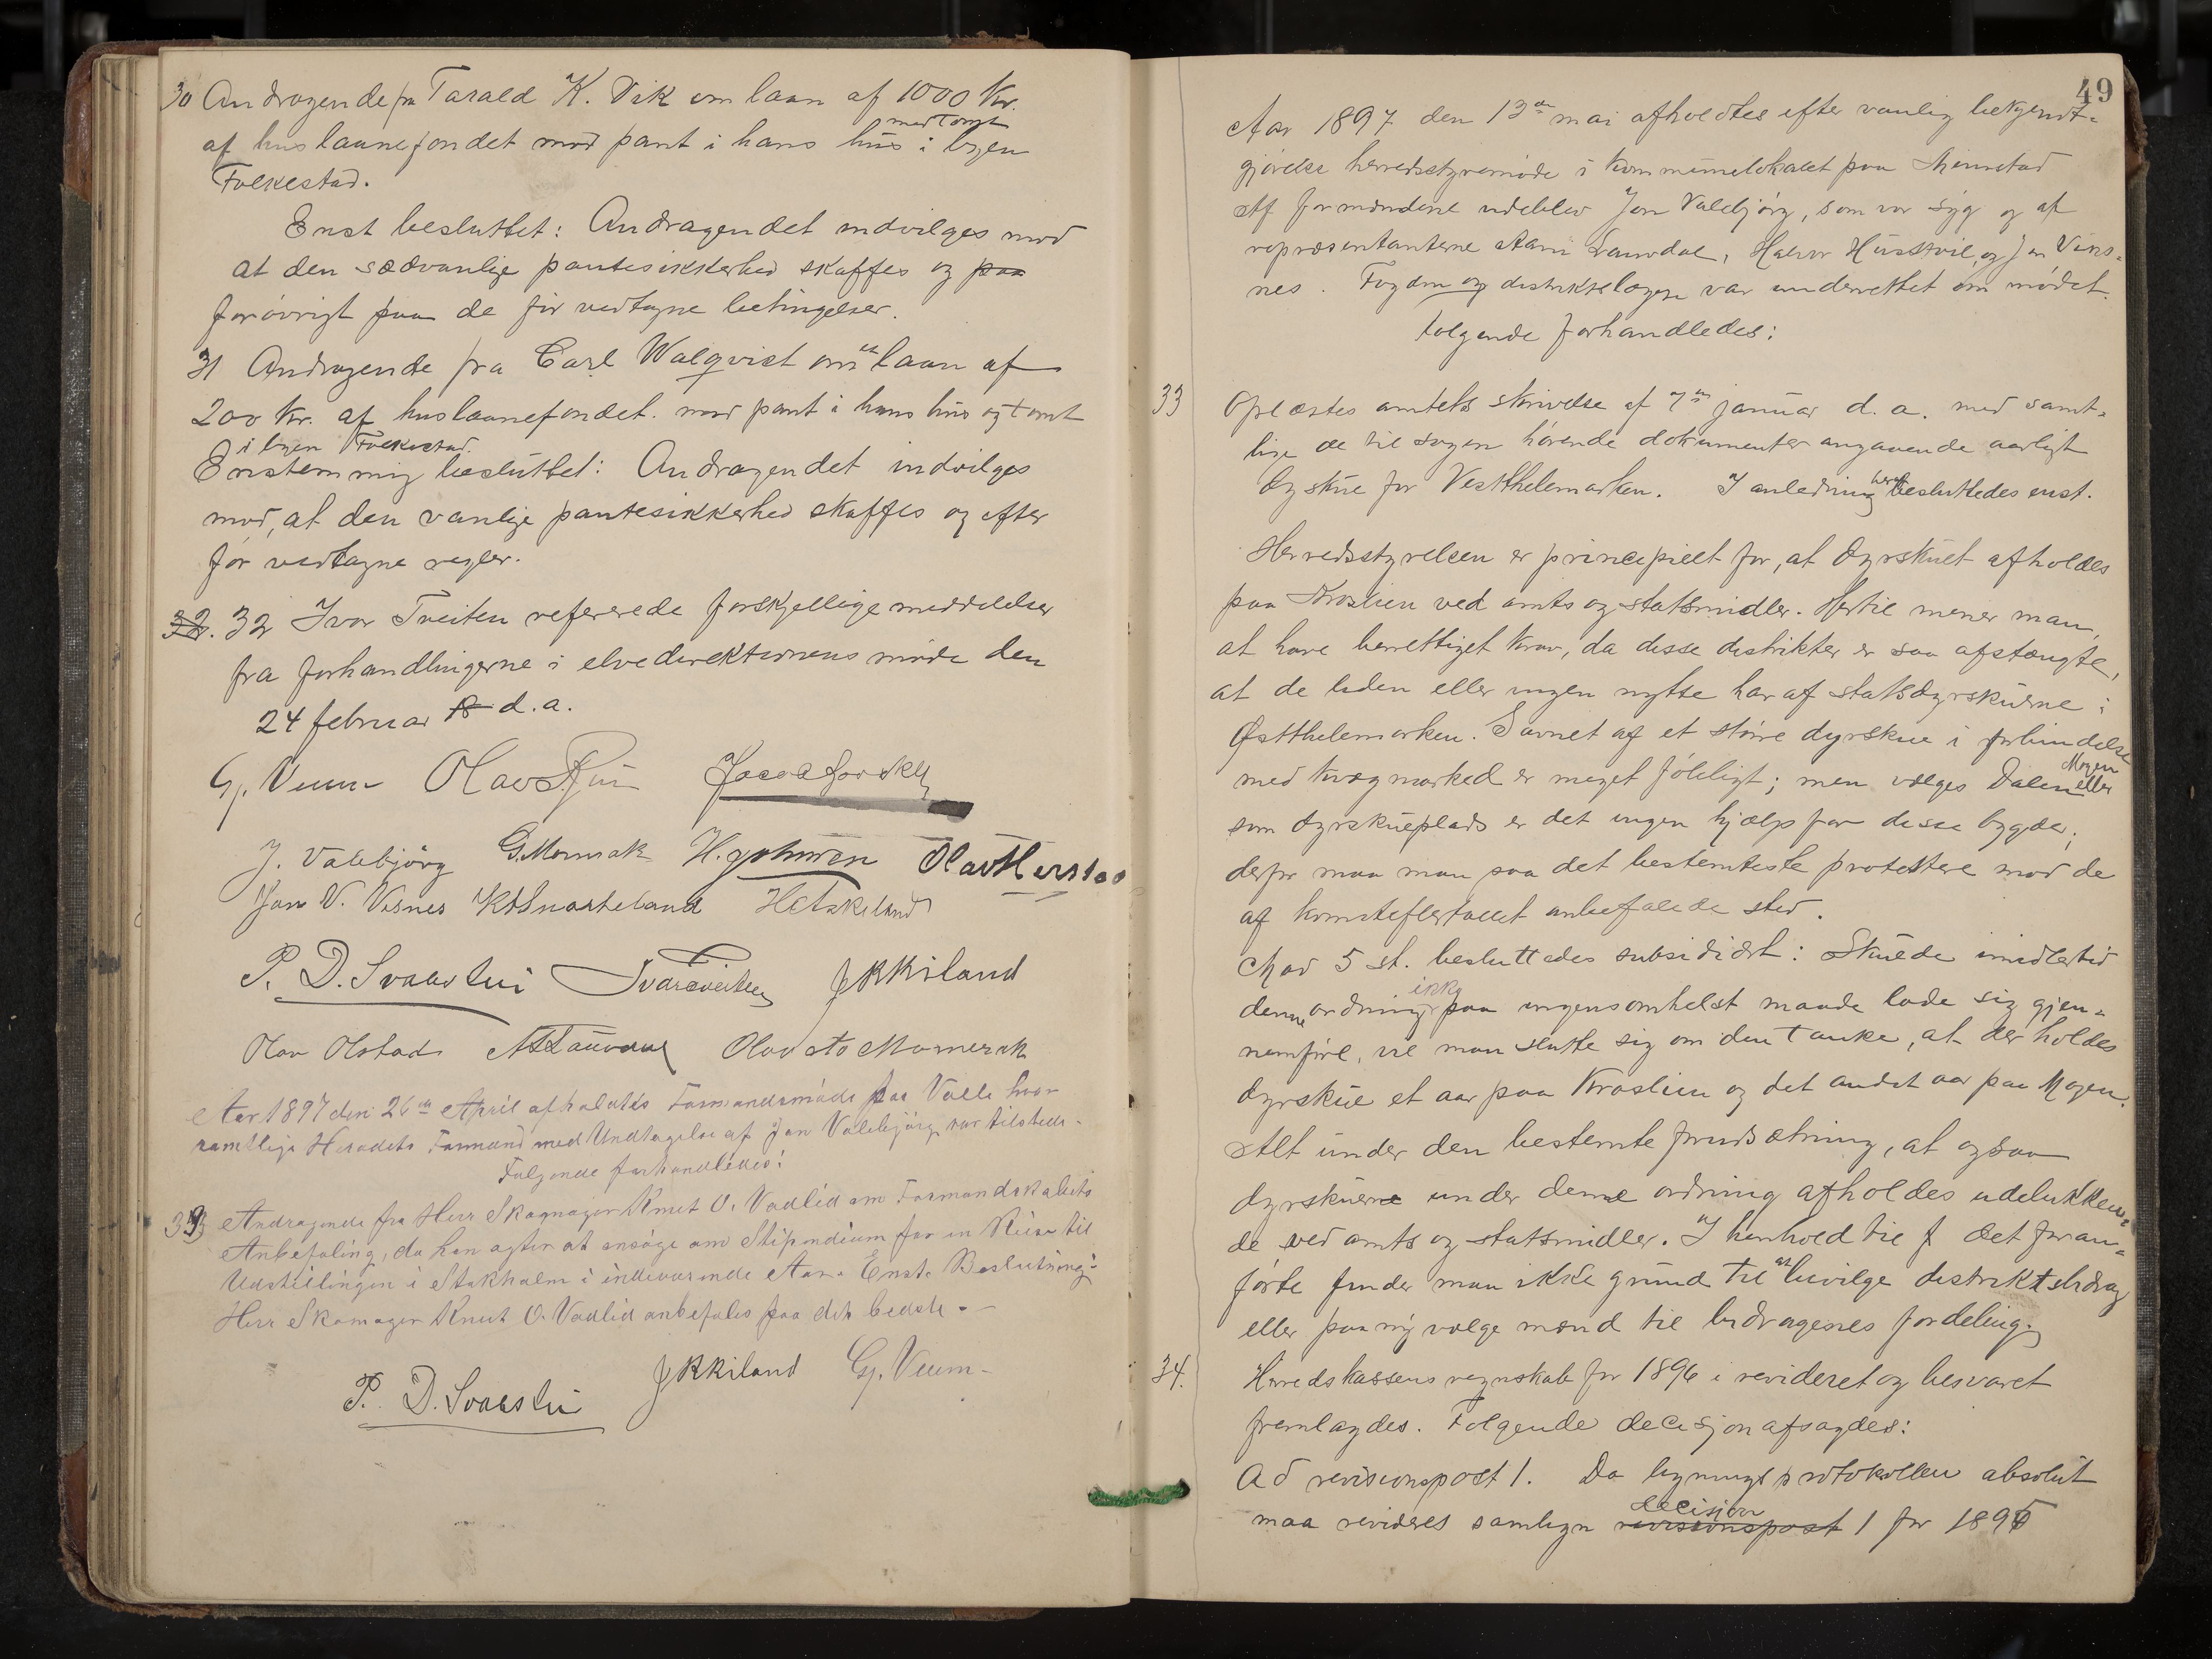 30 Andragende fra Tarald K. Vik om laan af 1000 Kr.
af huslaanefondet mod pant i hans hus med tomt i byen
Folkestad.
Enst besluttet: Andragendet indvilges mod
at den sædvanlige pantesikkerhed skaffes og paa
forøvrigt paa de før vedtagne betingelser.
31 Andragende fra Carl Walqvist om et laan af
200 Kr. af huslaanefondet mod pant i hans hus og tomt
i byen Folkestad.
Enstemmig besluttet: Andragendet indvilges
mod, at den vanlige pantesikkerhed skaffes og efter
før vedtagne regler.
32. 32 Ivar Tveiten refererede forskjellige meddelelser
fra forhandlingerne i elvedirektionens møde den
24 februar 18 d.a.
Gj. Veum
J. Valebjørg G. Momrak
Jon V. Visnes
P. D. Svaastui Ivar Tveiten J K Kiland
Olav Olstad Momrak
Aar 1897 den 26de April afholdtes Formandsmøde paa Valle hvor
samtlige Heradets Formænd med Undtagelse af Jon Valebjørg var tilstede.
Følgende forhandledes:
33 Andragende fra Herr Skomager Knut O. Vadlid om Formandskabets
Anbefaling, da han agter at ansøge om Stipendium for en Reise til
Udstillingen i Stokholm i indeværende Aar. Enst. Beslutning:
Herr Skomager Knut O. Vadlid anbefales paa det bedste.
P. D. Svaastui J K Kiland Gj. Veum
49
Aar 1897 den 13de mai afholdtes efter vanlig bekjendt-
gjørelse herredsstyremøde i kommunelokalet paa
Af formændene udeblev Jon Valebjørg, som var syg og af
repræsentanterne Aani Lauvdal, Halvor og Jon Vis-
nes. Fogden og distriktslægen var underrettet om mødet.
Følgende forhandledes:
33 Oplæstes amtets skrivelse af 7de januar d.a. med samt-
lige de til sagen hørende dokumenter angaaende aarligt
dyrskue for Vestthelemarken. I anledning heraf besluttedes enst.
Herredsstyrelsen er principielt for, at dyrskuet afholdes
paa Kroslien ved amts og statsmidler. Hertil mener man,
at have berettiget krav, da disse distrikter er saa afstængte,
at de liden eller ingen nytte har af statsdyrskuerne i
Østthelemarken. Savnet af et større dyrskue i forbindelse
med kvægmarked er meget føleligt; men vælges Dalen eller Mogen
som dyrskueplads er det ingen hjælp for disse bygder;
derfor maa man paa det bestemteste protestere mod de
af komiteflertallet anbefalede sted.
Mod 5 st. besluttedes subsidiært: Skulde imidlertid
denne ordning ikke paa ingensomhelst maade lade sig gjen-
nemføre, vil man slutte sig om den tanke, at der holdes
dyrskue et aar paa Kroslien og det andet aar paa Mogen.
Alt under den bestemte forudsætning, at ogsaa
dyrskuerne under denne ordning afholdes udelukken-
de ved amts og statsmidler. I henhold til f det foran-
førte finder man ikke grund til at bevilge distriktsbidrag
eller paany vælge mænd til bidragenes fordeling.
34. Herredskassens regnskab for 1896 i revideret og besvaret
fremlagdes. Følgende decisjon afsagdes:
Ad revisionspost 1. Da ligningsprotokollen absolut
maa revideres samlign revisionspost decisjon 1 for 1895